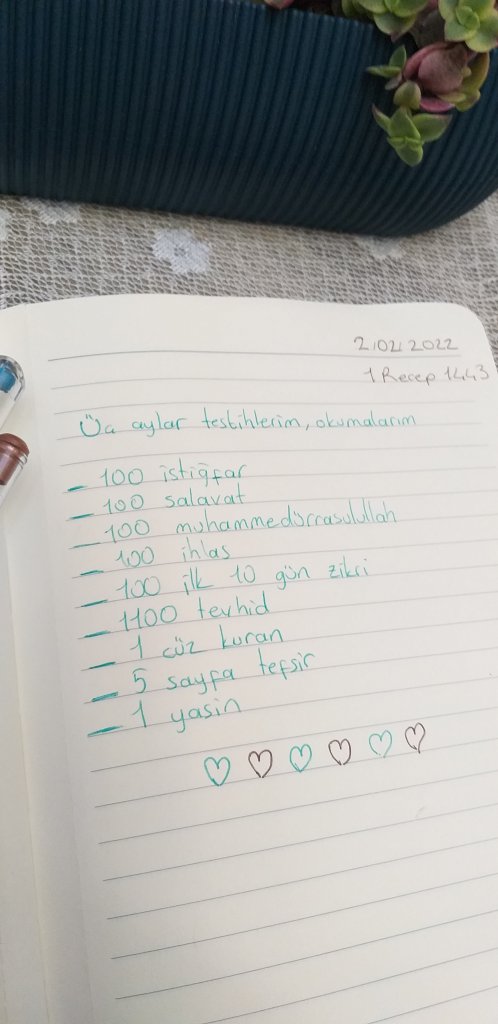 2/02/2022
1 Recep 1443
Üç aylar tesbihlerim, okumalarım
- 100 istiğfar
- 100 salavat
- 100 muhammedürrasulullah
- 100 ihlas
- 100 ilk 10 gün zikri
- 1100 tevhid
- 1 cüz kuran
- 5 sayfa tefsir
- 1 yasin